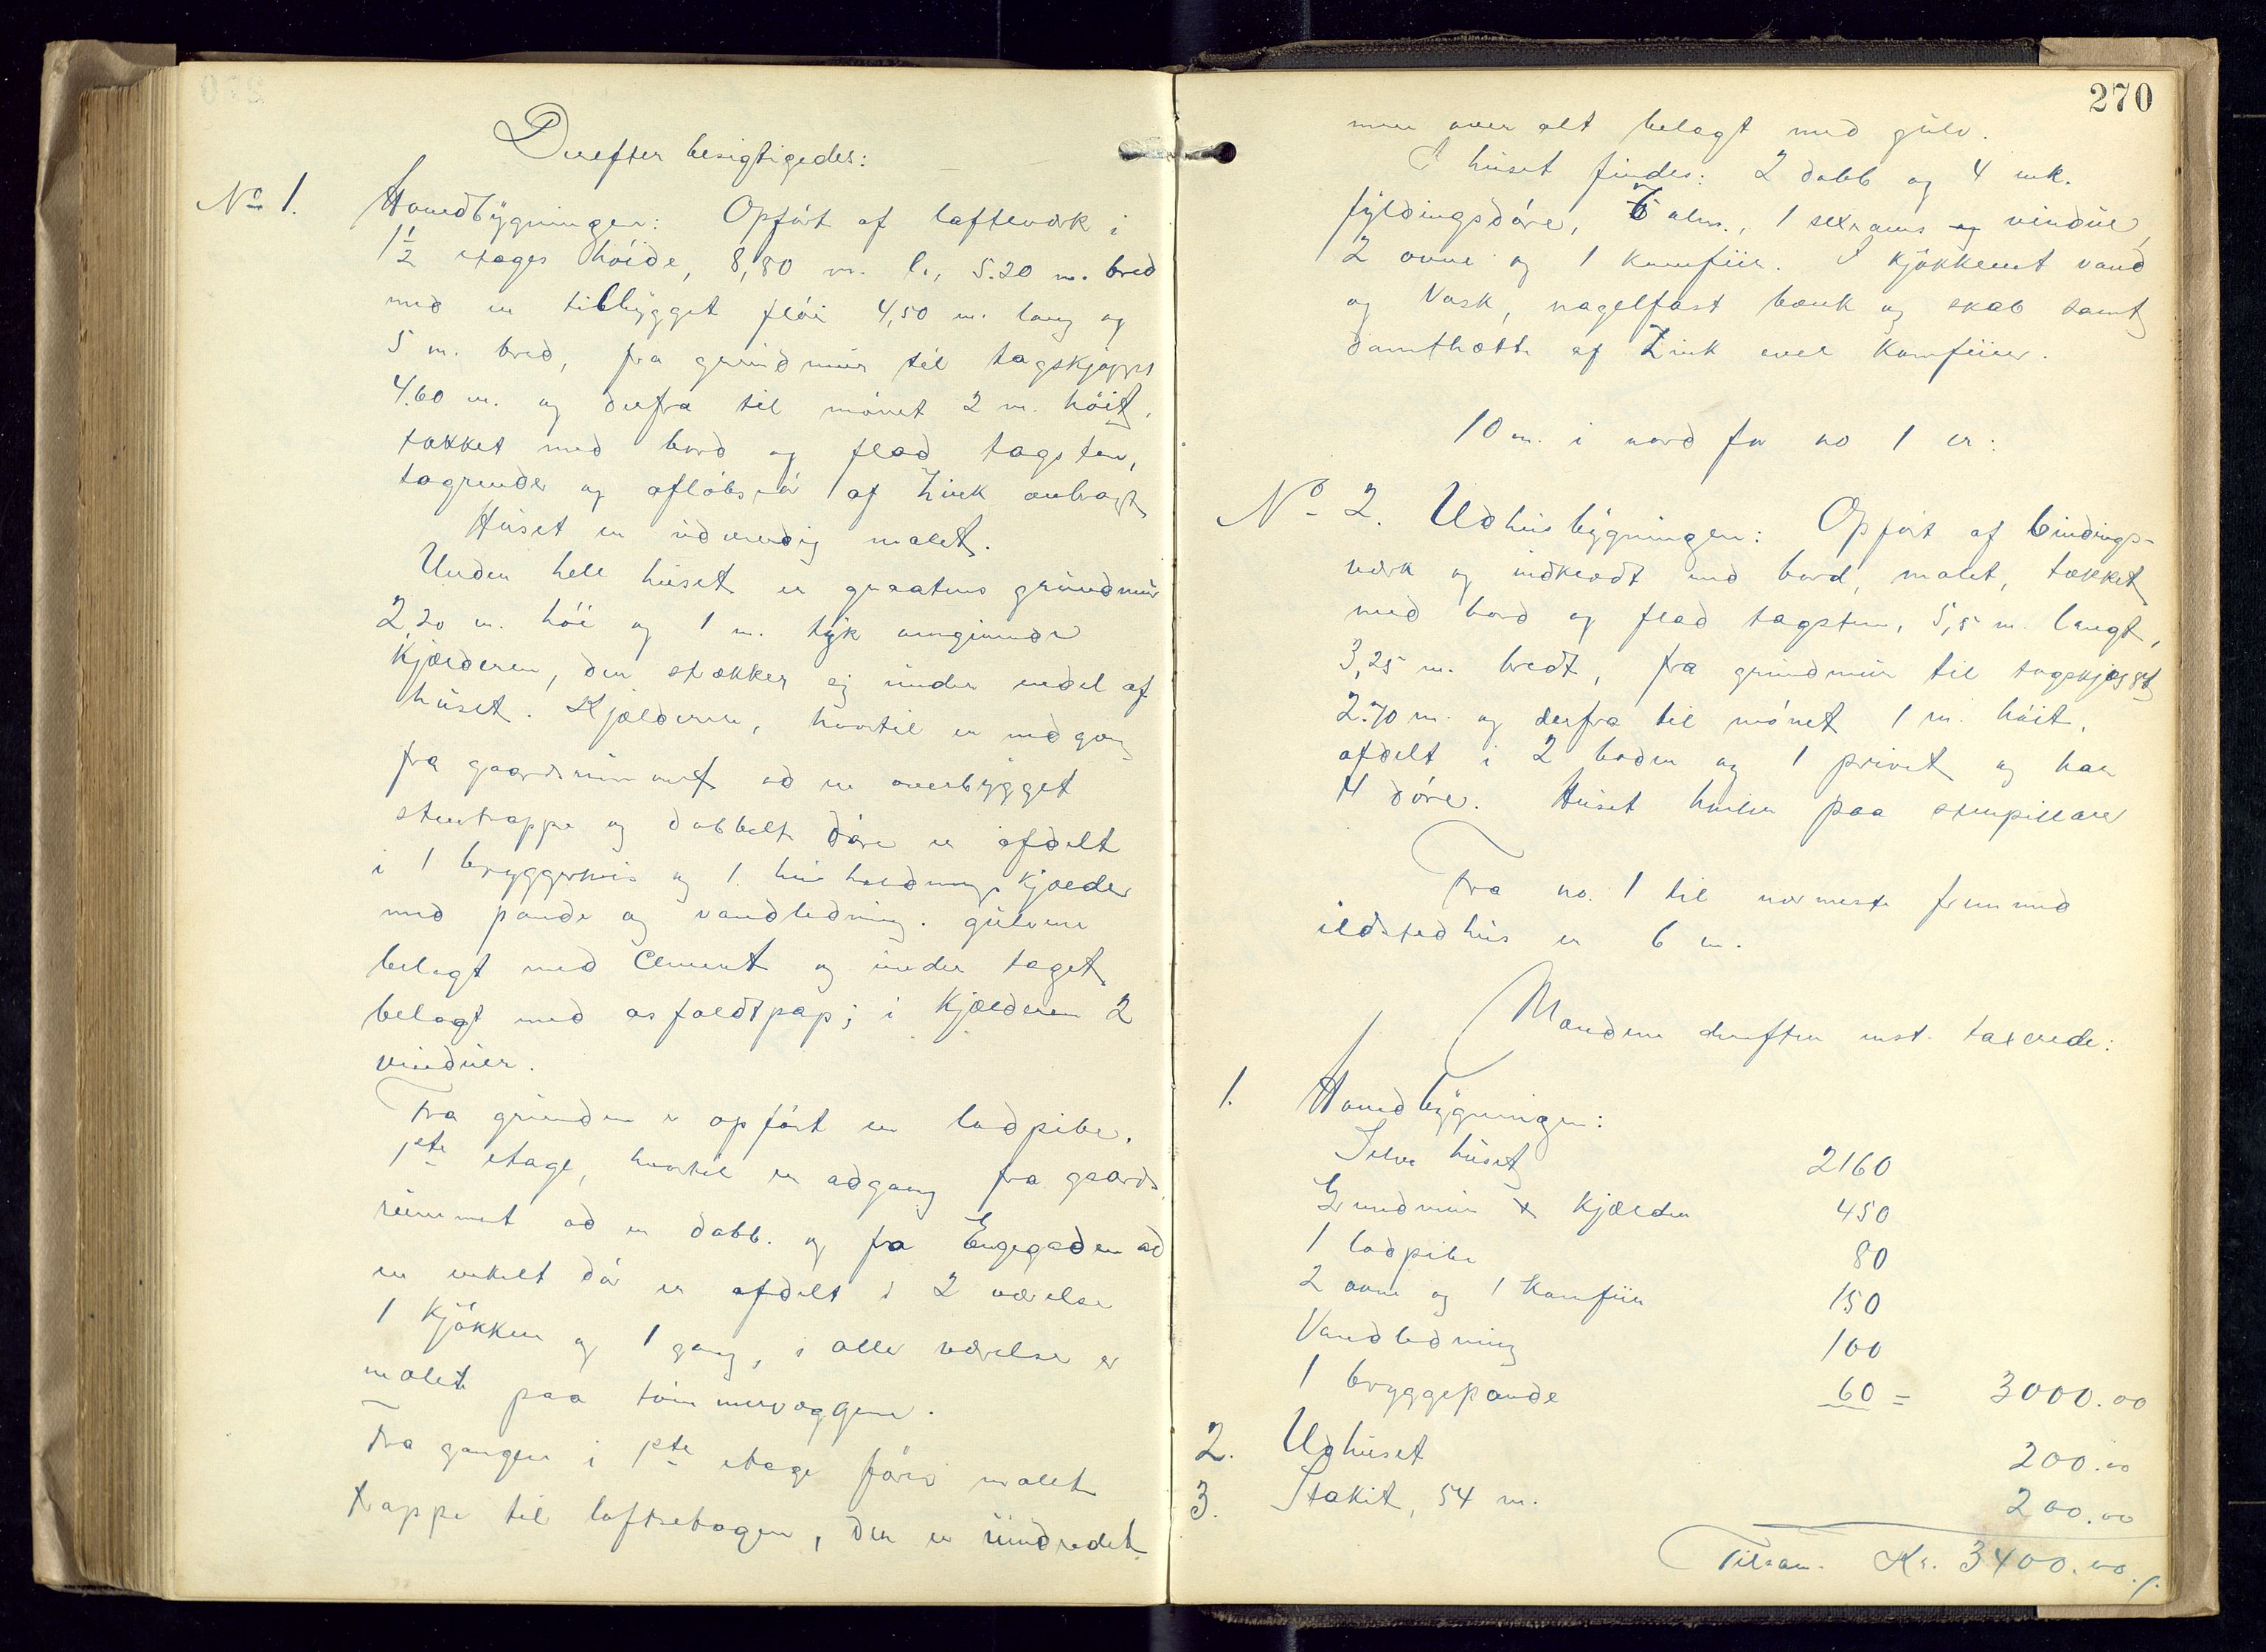 Derefter besigtigedes:
No 1. Hovedbygningen: Opført af lafteværk i
1 1/2 etages høide, 8,80 m. l., 5.20 m. bred
med en tilbygget fløi 4,50 m. lang og
5 m. bred, fra grundmur til tagskjægget
4.60 m. og derfra til mønet 2 m. høit,
tækket med bord og flad tagsten,
tagrender og afløbsrør af Zink anbragt
Huset er udvendig malet.
Under hele huset er graastens grundmur
2,20 m. høi og 1 m. tyk omgivende
kjælderen, der strækker sig under endel af
huset. Kjælderen, hvortil er nedgang
fra gaardsrummet ad en overbygget
stentrappe og dobbelt døre er afdelt
i 1 bryggerhus og 1 husholdningskjælder
med pande og vandledning. gulvene
belagt med Cement og under taget
belagt med asfaldtpap; i kjælderen 2
vinduer.
Fra grunden er opført en ladpibe.
1ste etage, hvortil er adgang fra gaards
rummet ad en dobb. og fra Engegaden ad
en enkelt dør er afdelt i 2 værelse
1 kjøkken og 1 gang, i alle værelse er
malet paa tømmervæggene.
Fra gangen i 1ste etage fører malet
trappe til loftsetagen, der er uindredet
270
men over alt belagt med gulv.
I huset findes: 2 dobb og 4 enk.
fyldingsdøre, 6 alm., 1 sexrams og vindue,
2 ovne og 1 komfuir. I kjøkkenet vand
og Vask, nagelfast bænk og skab samt
damfhætte af Zink over Komfuier.
10 m. i nord for no 1 er:
No 2. Udhusbygningen: Opført af bindings-
værk og indklædt med bord, malet, tækket
med bord og flad tagsten, 5,5 m. langt,
3,25 m. bredt, fra grundmur til tagskjægget
2.70 m. og derfra til mønet 1 m. høit,
afdelt i 2 boder og 1 privet og har
4 døre. Huset hviler paa stenpillarer
Fra no. 1 til nærmeste fremmed
ildstedhus er 6 m.
Mændene derefter enst. taxerede:
1. Hovedbygningen:
Selve huset 2160
Grundmur & kjælder 450
1 ladpibe 80
2 ovne og 1 komfuir 150
Vandledning 100
1 bryggepande 60 = 3000.00
2. Udhuset 200.00
3. Stakit, 54 m. 200.00
Tilsam. Kr. 3400.00